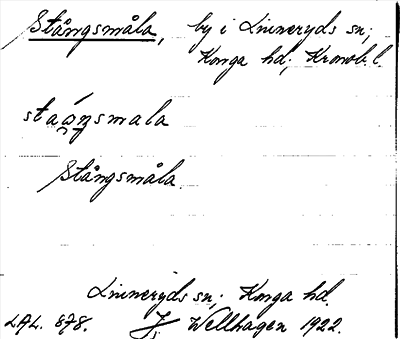 Stångsmåla, by i Linneryds sn;
Konga hd; Kronob. l.
Stångsmåla
Linneryds sn; Konga hd.
LAL. 878. J. Wellhagen 1922.